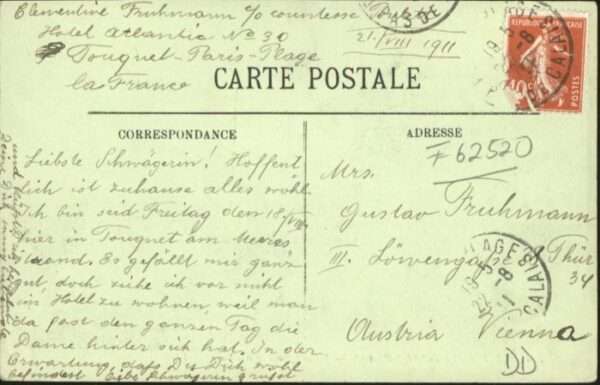 Clementine Fruhmann c/o countesse
Hotel Atlantic No 30
21/VIII 1911
Touquet-Paris-Plage
la France
CARTE POSTALE
CORRESPONDANCE
ADRESSE
F 62520
Liebste Schwägerin! Hoffent
lich ist zuhause alles wohl
Ich bin seid Freitag den 18/VIII
hier in Touquet am Meeres
strand. Es gefällt mir ganz
gut, doch ziehe ich vor nicht
im Hotel zu wohnen, weil man
da fast den ganzen Tag die
Dame hinter sich hat. In der
Erwartung dass Du Dich wohl
befindest Schwägerin
Mrs.
Gustav Fruhmann
III. Löwengasse Thür
34
Austria Vienna
DD
REPUBLIQUE FRANÇAISE
10c
POSTES
PAS DE
CALAIS
PLAGE
CALAIS